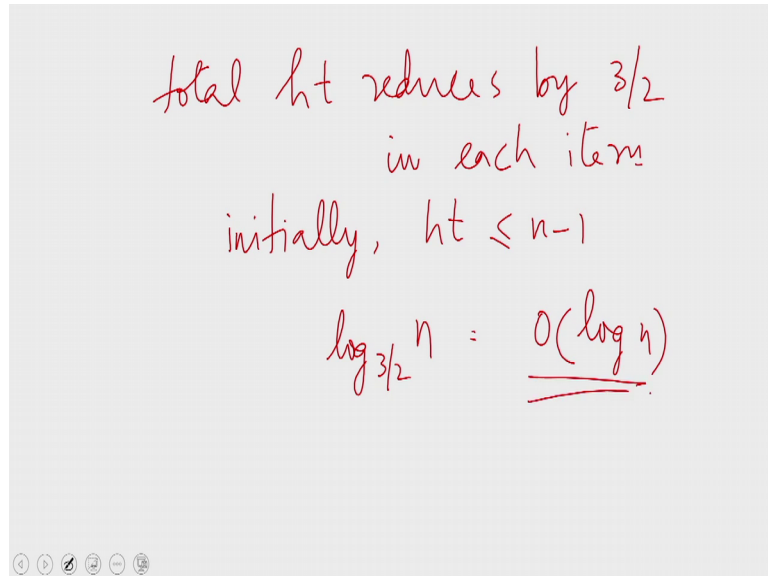 total ht reduces by 3/2
in each itern
initially, ht ≤ n-1
log_{3/2} n = O(log n)